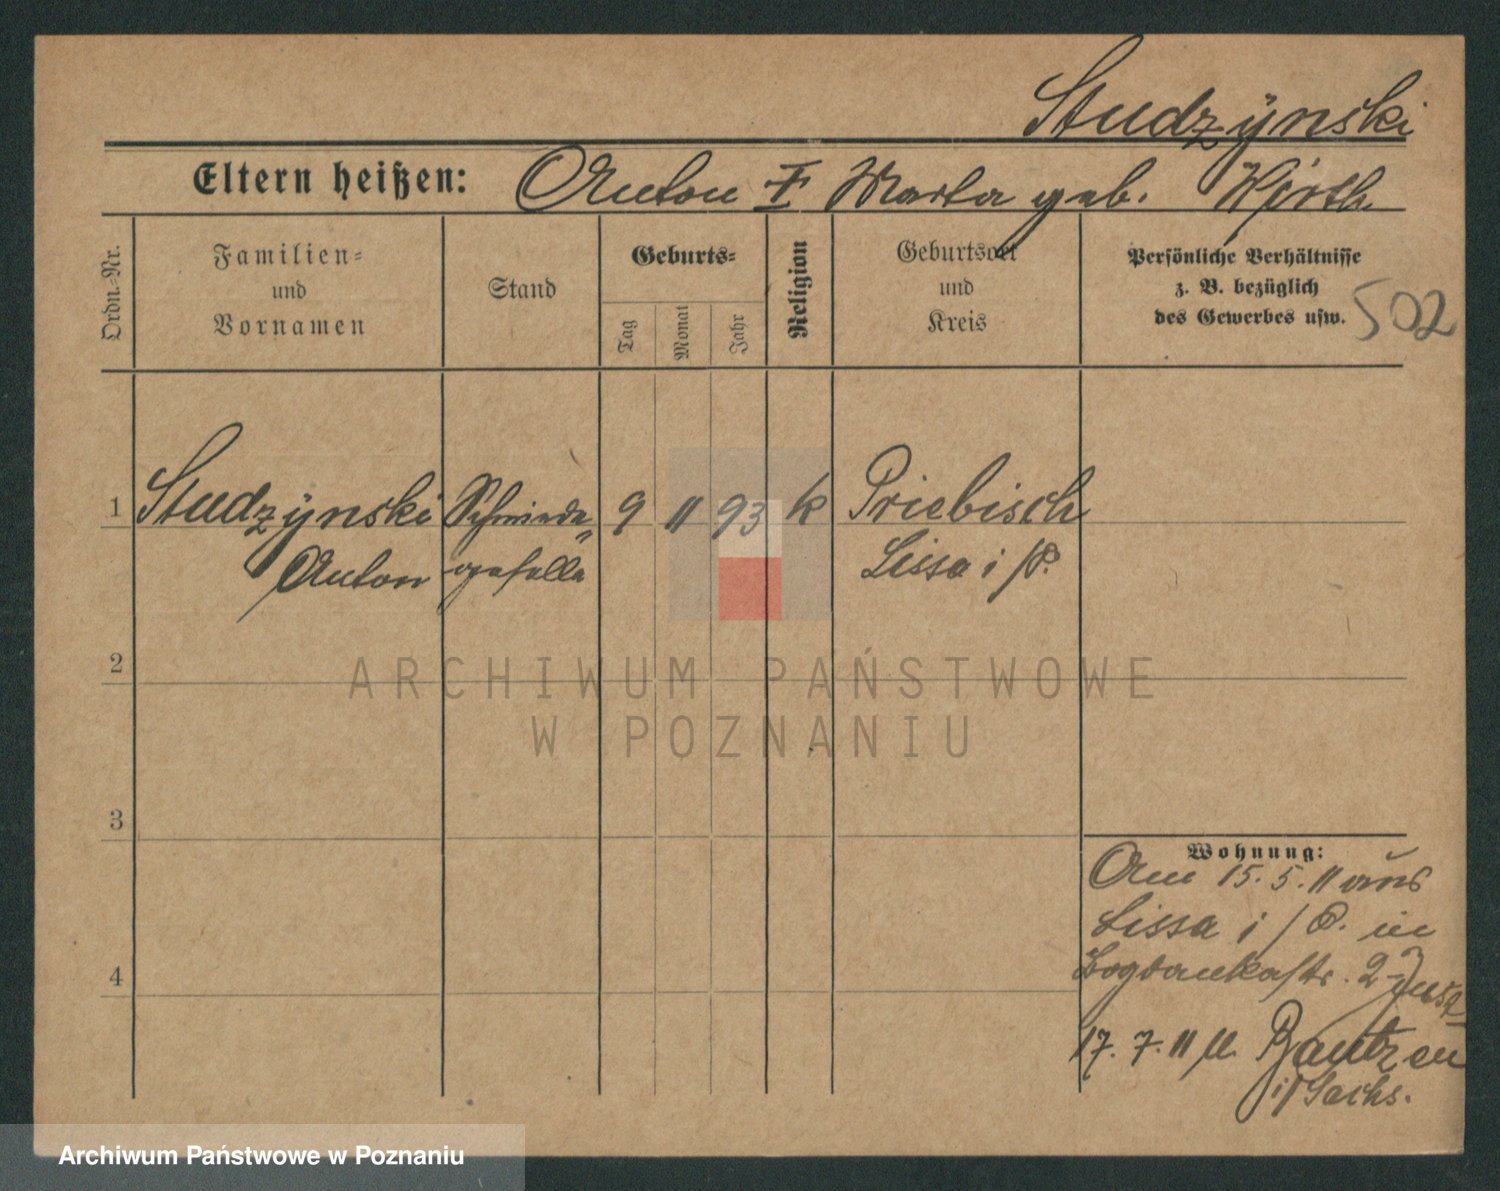 Studzÿnski
Eltern heißen: Anton I Marta geb. Wirth
Ordn.-Nr.
Familien-
und
Vornamen
Stand
Geburts-
Tag
Monat
Jahr
Religion
Geburtsort
und
Kreis
Persönliche Verhältnisse
z. B. bezüglich
des Gewerbes usw.
502
1 Studzÿnski Schmiede- 9 11 93 k Priebisch
Anton geselle Lissa i/P.
2
ARCHIWUM PAŃSTWOWE
W POZNANIU
3
Wohnung:
Am 15.5.11 aus
Lissa i/P. in
Bogdankastr. 2
4
17.7.11 n. Bautzen
i/Sachs.
Archiwum Państwowe w Poznaniu